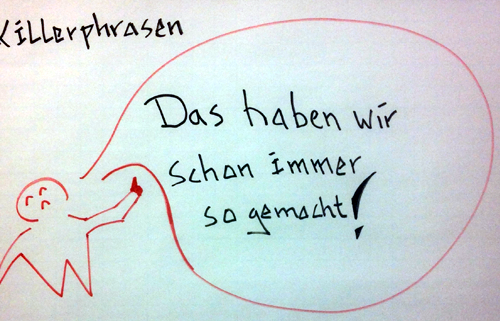 Killerphrasen
Das haben wir
schon immer
so gemacht!